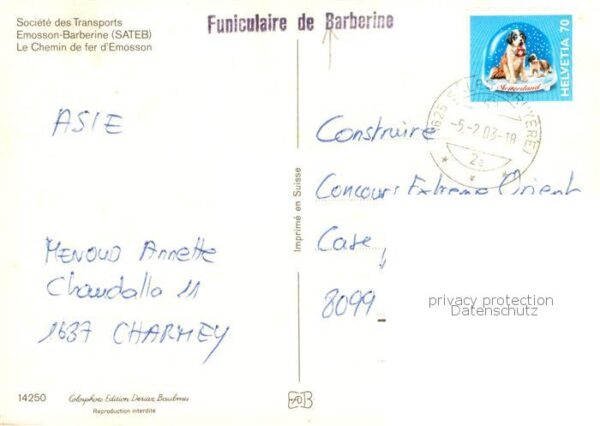 Société des Transports
Emosson-Barberine (SATEB)
Le Chemin de fer d'Emosson
Funiculaire de Barberine
HELVETIA 70
ASIE
Construire
Concours Extreme Orient
Case
8099
MENOUD Annette
Chaudalla 11
1637 CHARMEY
-5.-2.03-18
2a
Imprimé en Suisse
privacy protection
Datenschutz
14250
Colorphoto Edition Deriaz Baulmes
Reproduction interdite